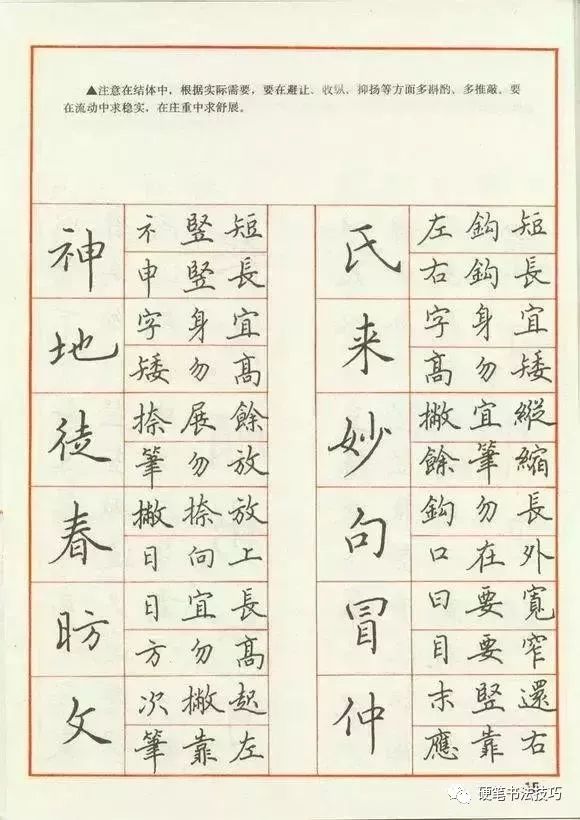 ▲注意在结体中，根据实际需要，要在避让、收纵、抑扬等方面多斟酌、多推敲。要
在流动中求稳实，在庄重中求舒展。
神
礻竪短
申竪長
地
字身宜
矮勿高
徒
捺展餘
筆勿放
春
撇捺放
日向上
昉
日宜長
方勿高
文
次撇起
筆靠左
氏
左鈎短
右鈎長
来
字身宜
高勿矮
妙
撇宜縱
餘筆縮
句
鈎勿長
口在外
冒
曰要寬
目要窄
仲
末竪還
應靠右
15
硬笔书法技巧